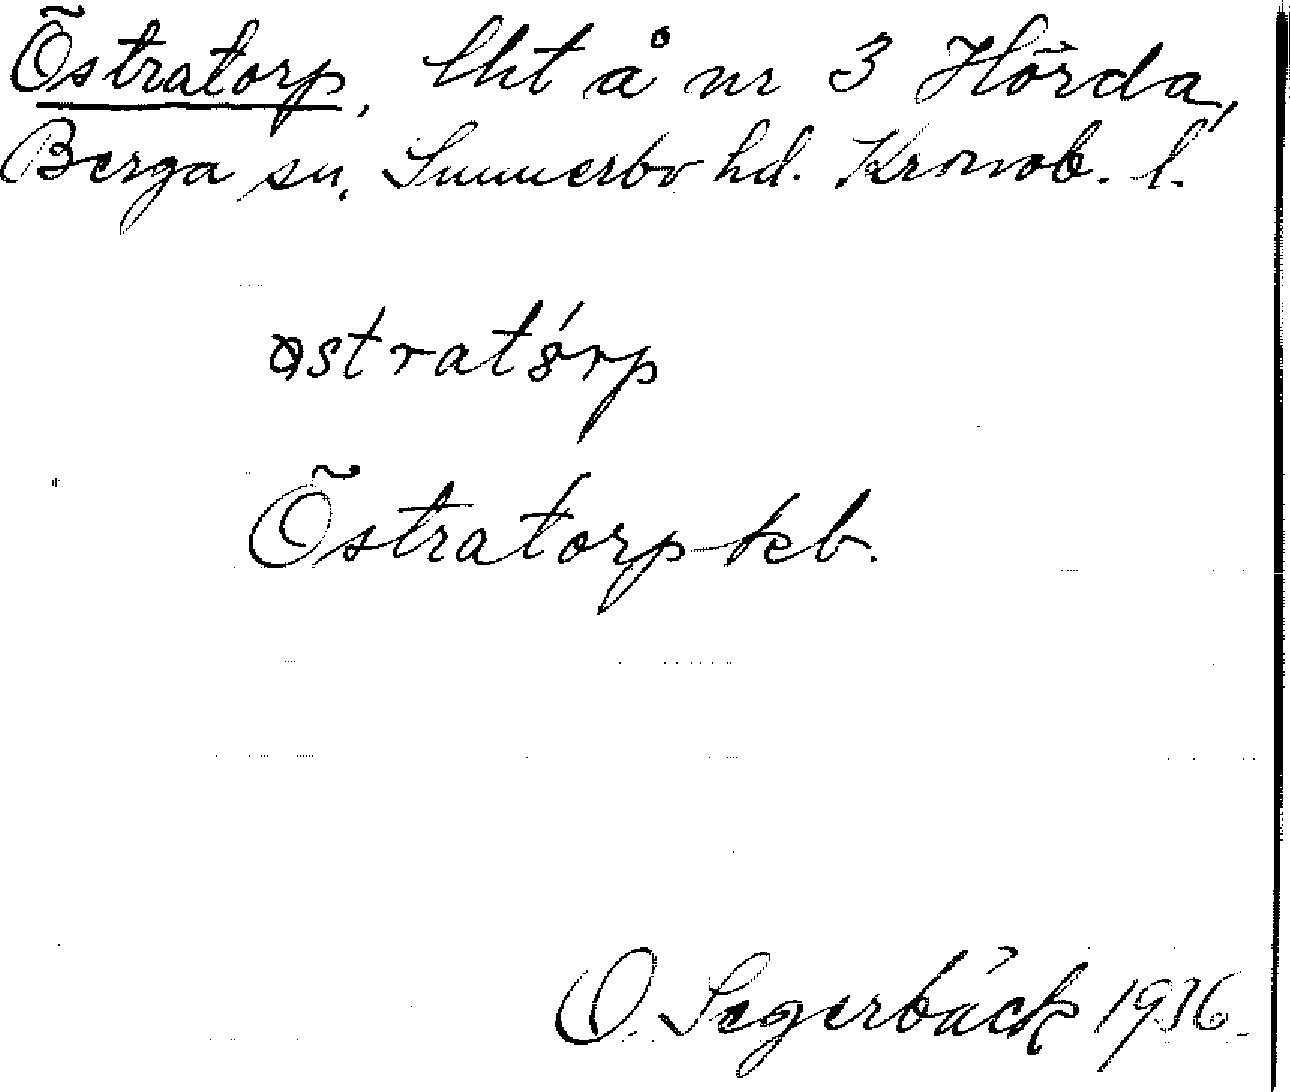 Östratorp, lht å nr 3 Hörda,
Berga sn. Sunnerbo hd. Kronob. l.
østratǿrp
Östratorp kb.
O. Segerbäck 1936